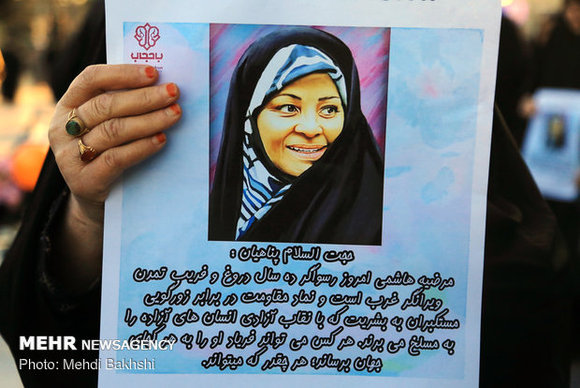 باحجاب
حجت السلام پناهیان :
مرضیه هاشمی امروز رسواگر ده سال دروغ و فریب تمدن
ویرانگر غرب است و نماد مقاومت در برابر زورگویی
مستکبران به بشریت که با نقاب آزادی انسان های آزاده را
به مسلخ می برند. هر کس می تواند فریاد او را به
جهان برساند؛ هر چقدر که میتواند.
MEHR NEWSAGENCY
Photo: Mehdi Bakhshi